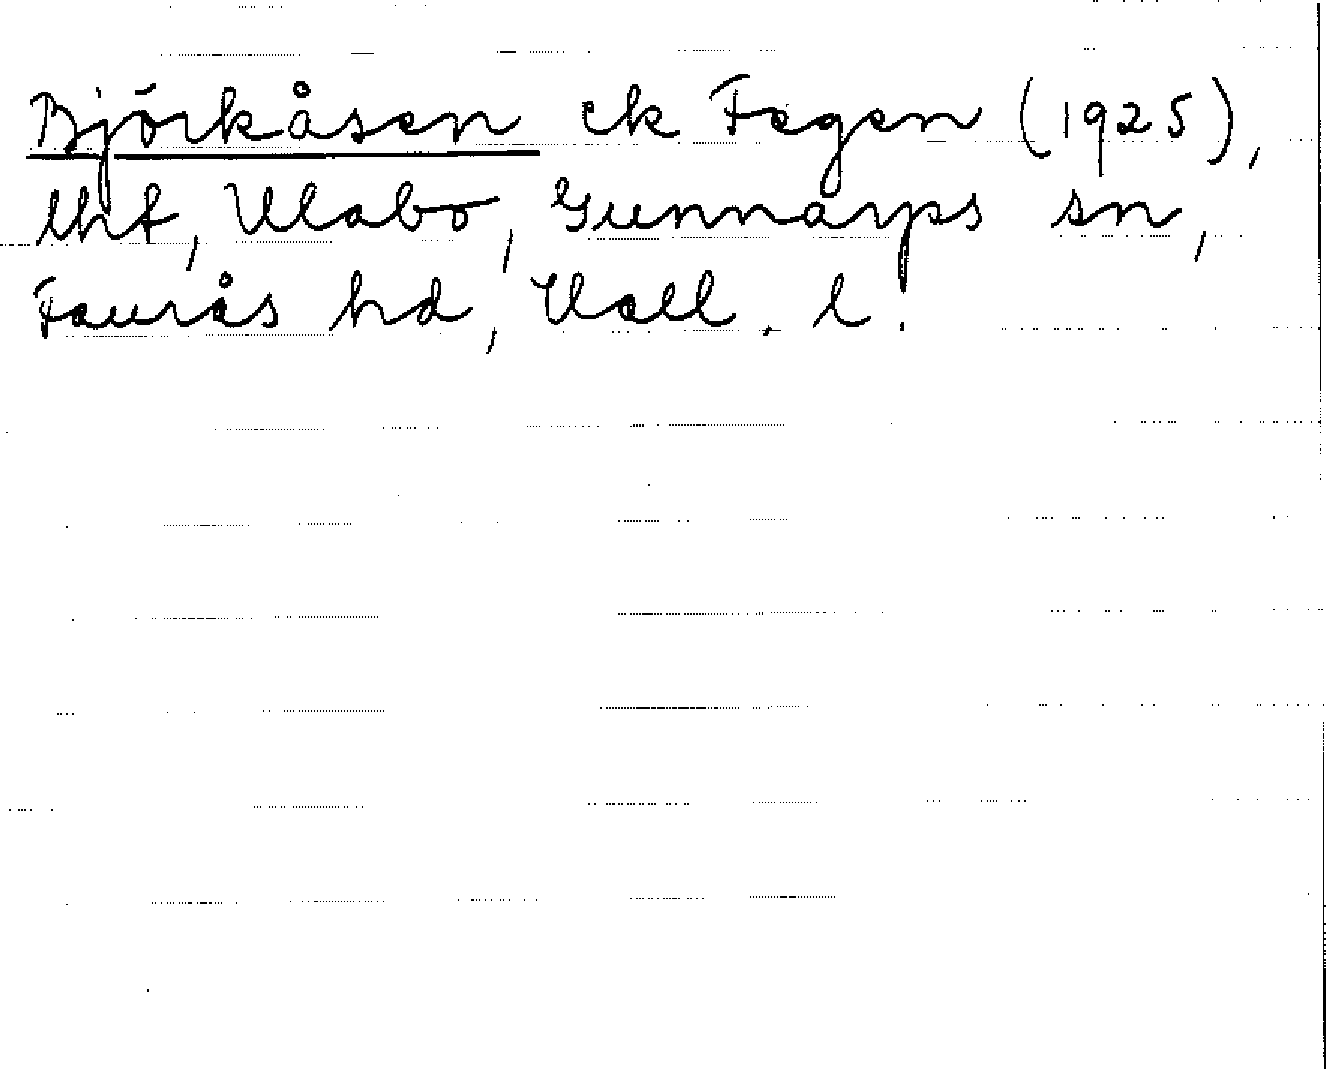 Björkåsen ek Fegen (1925),
lht, Ulabo, Gunnarps sn,
Faurås hd, Hall. l.